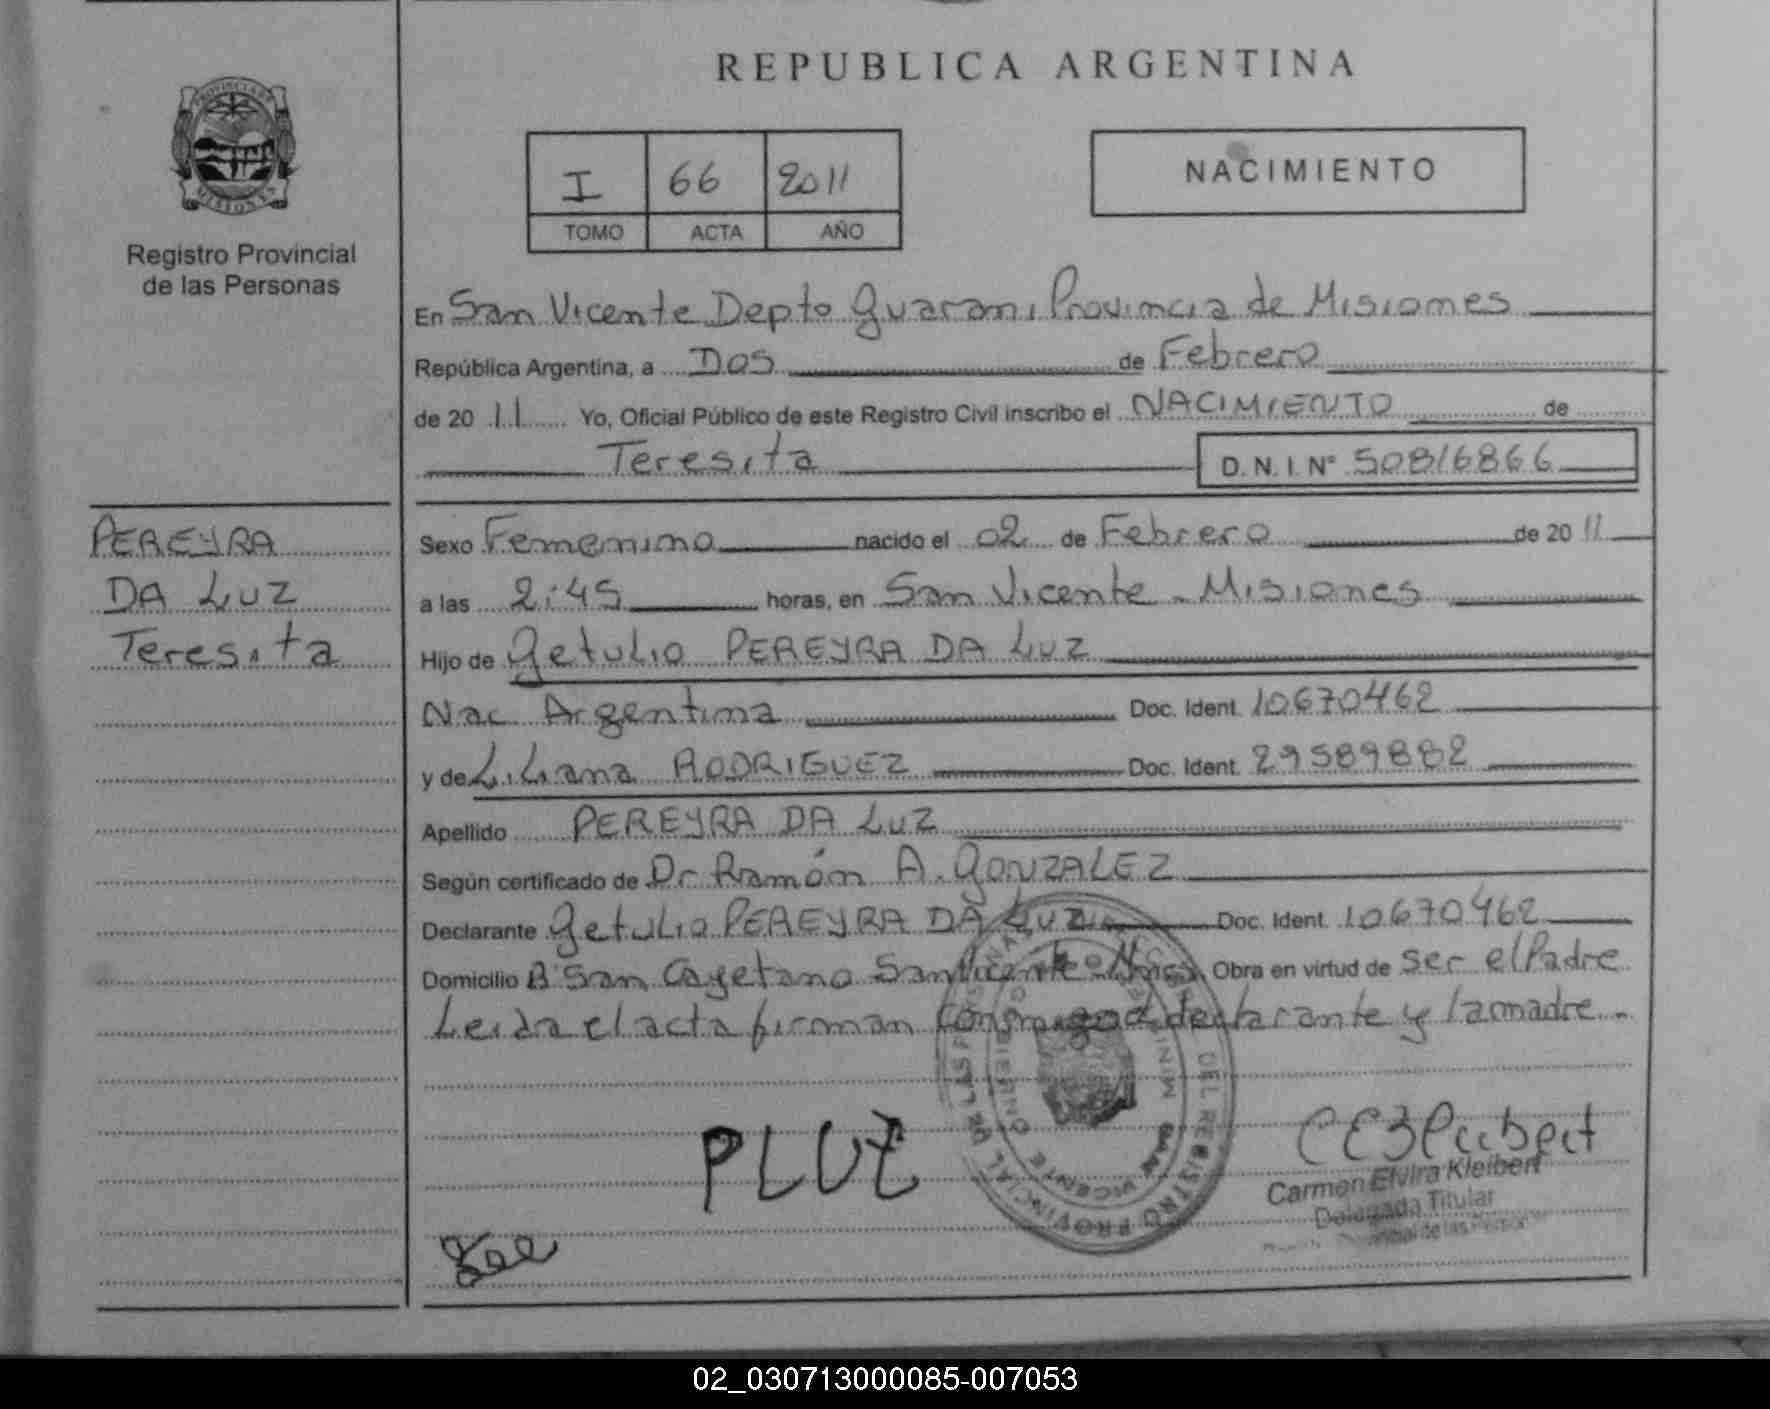 REPUBLICA ARGENTINA
PROVINCIA DE
MISIONES
Registro Provincial
de las Personas
I 66 2011
TOMO ACTA AÑO
NACIMIENTO
En San Vicente Depto Guarani Provincia de Misiones
República Argentina, a Dos de Febrero
de 20 11 Yo, Oficial Público de este Registro Civil inscribo el NACIMIENTO de
Teresita D.N.I.Nº 50816866
PEREYRA
DA LUZ
Teresita
Sexo Femenino nacido el 02 de Febrero de 20 11
a las 2:45 horas, en San Vicente - Misiones
Hijo de Getulio PEREYRA DA LUZ
Nac Argentina Doc. Ident. 10670462
y de Liliana RODRIGUEZ Doc. Ident. 29589882
Apellido PEREYRA DA LUZ
Según certificado de Dr Ramón A. GONZALEZ
Declarante Getulio PEREYRA DA LUZ Doc. Ident. 10670462
Domicilio Bº San Cayetano San Vicente - Mnes Obra en virtud de ser el Padre
Leida el acta firman conmigo el declarante y la madre -
PLUZ
Carmen Elvira Kleibert
Delegada Titular
02_030713000085-007053